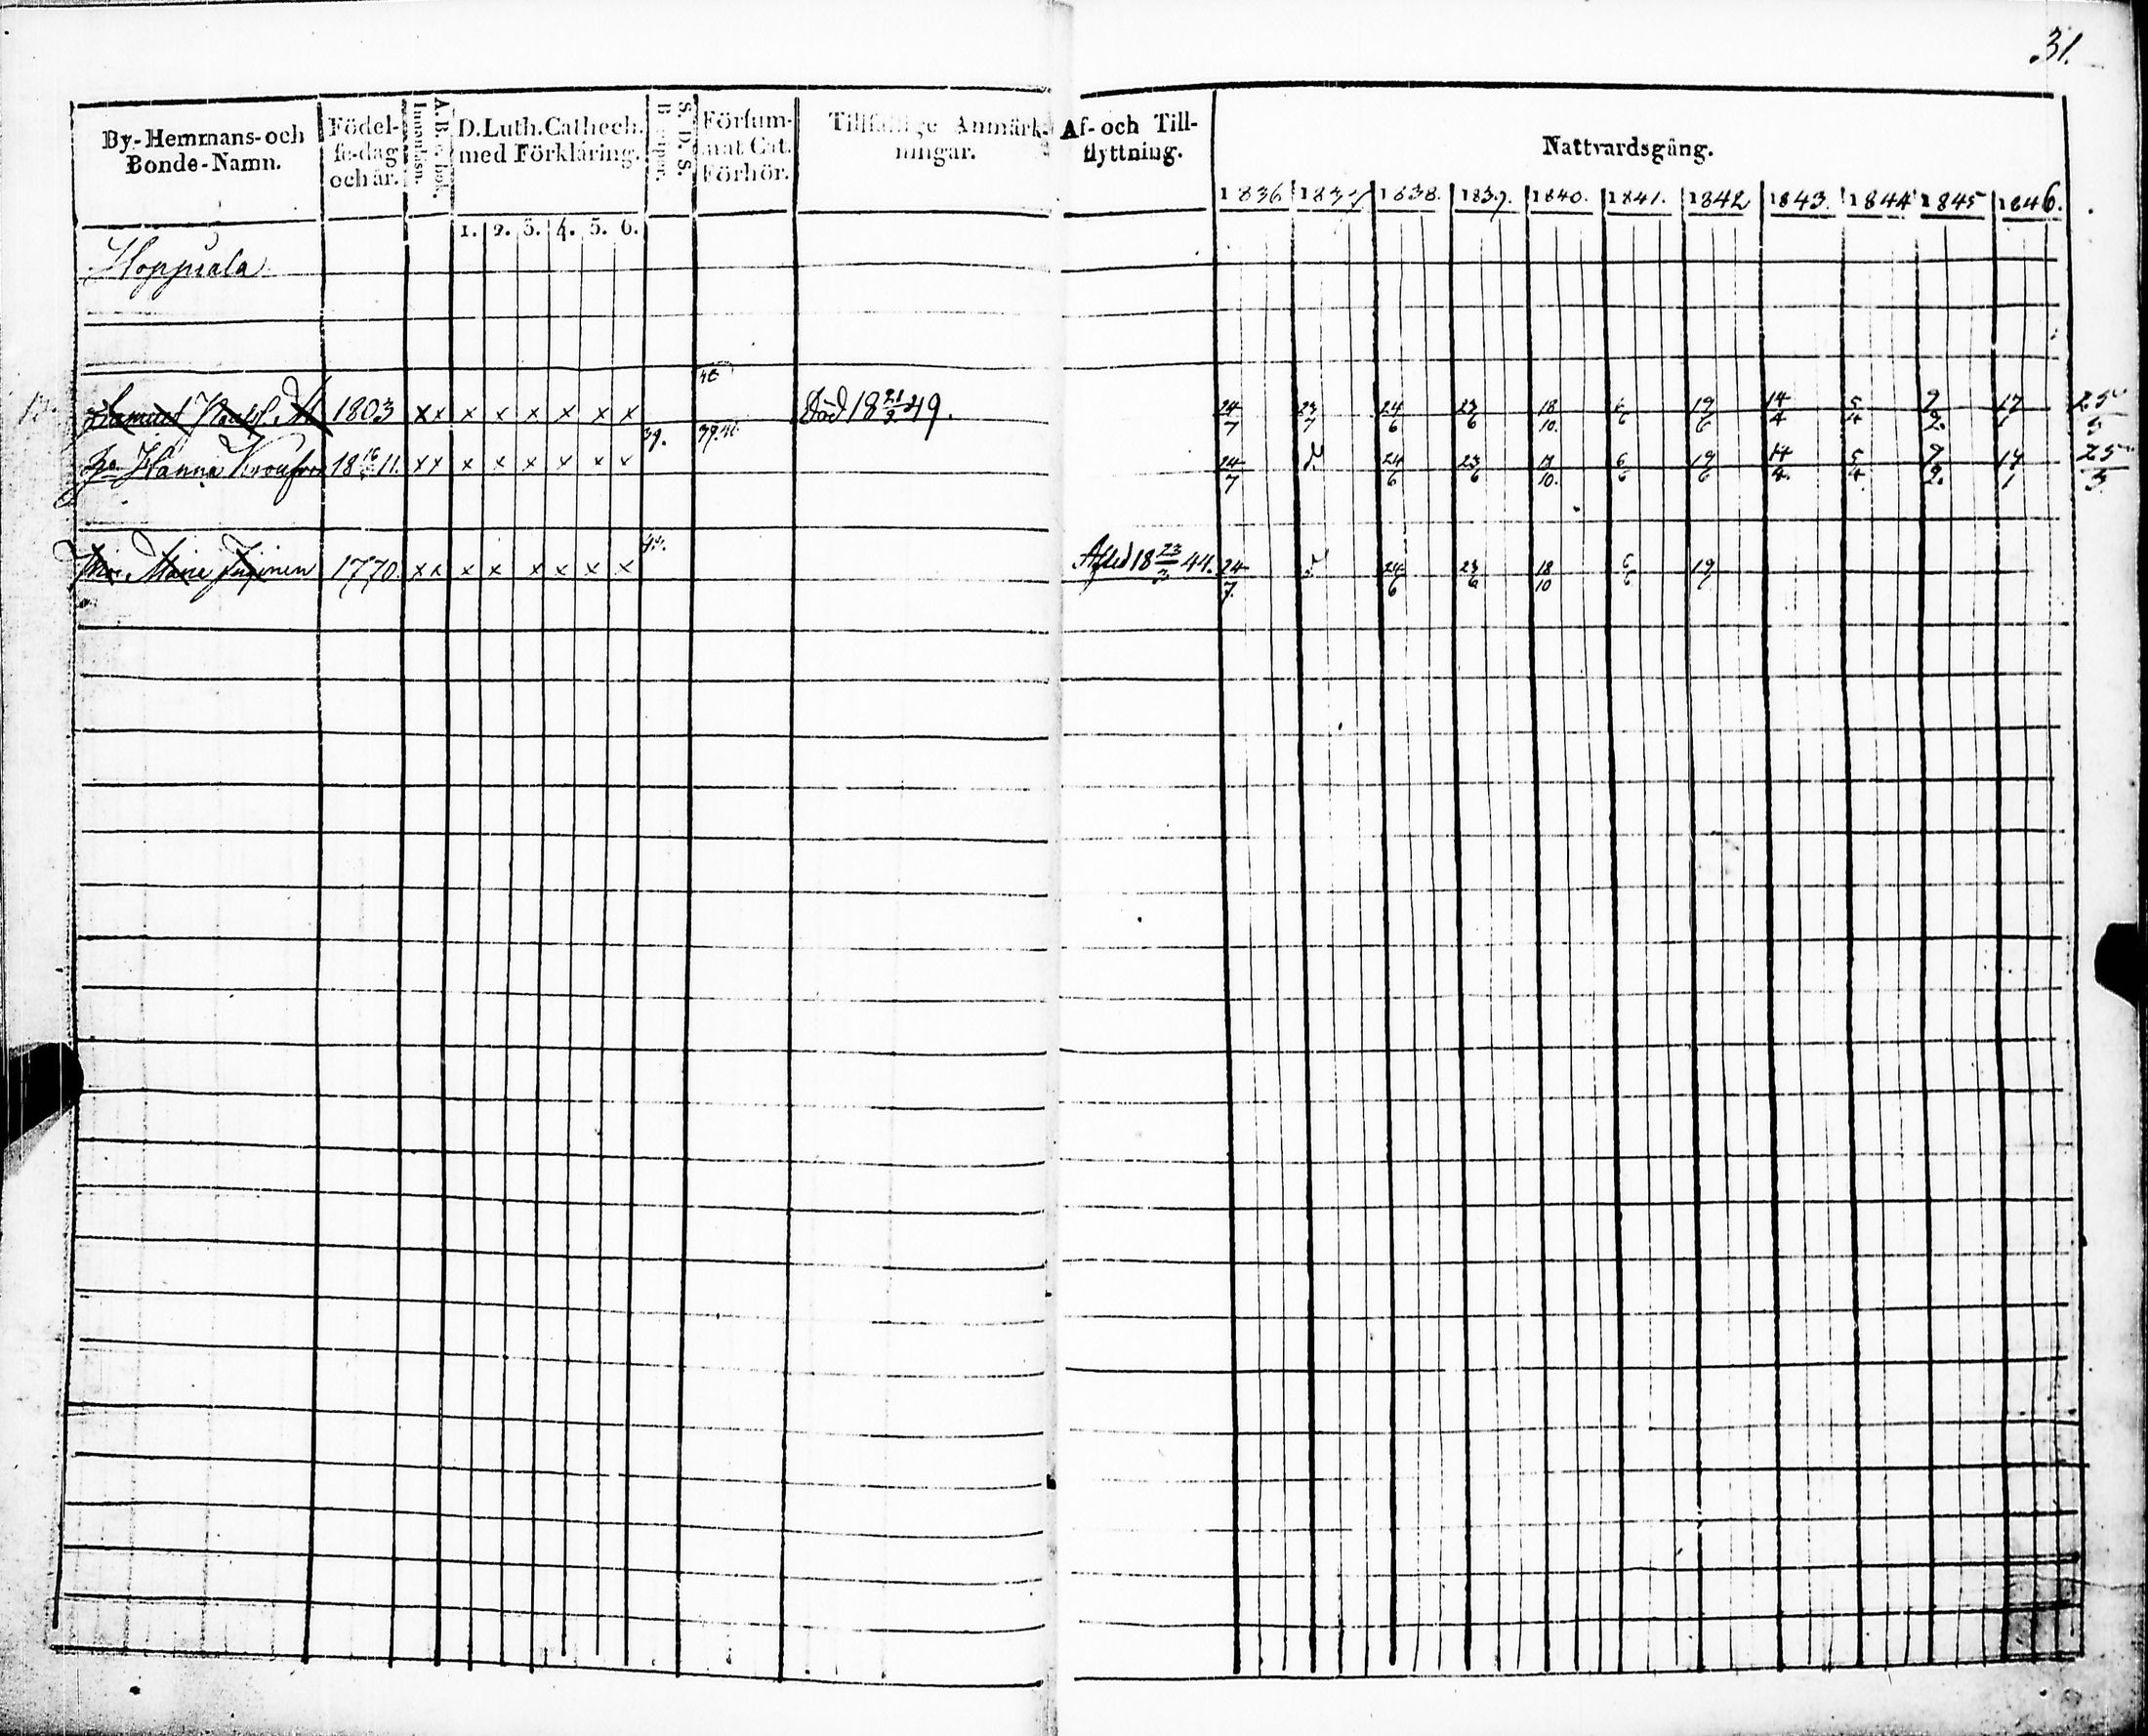 31.
By-Hemmans-och Bonde-Namn.
Födel-se-dag och år.
Innanläsn.
A.B.c.bok.
D.Luth.Cathech. med Förklåring.
1. 2. 3. 4. 5. 6.
S. D. S.
Försum-mat Cat. Förhör.
Tillfällige Anmärk-ningar.
Af- och Till-flyttning.
Nattvardsgång.
1836 1837 1838. 1839. 1840. 1841. 1842 1843. 1844 1845 1846.
Hoppiala
40
1803 x x x x x x x x Död 18 21/2 49. 24/7 23/7 24/6 23/6 18/10. 6/6 19/6 14/4 5/4 9/2. 17/1 25/3
39. 39.40
Hanna 18 16 11. x x x x x x x x 24/7 24/6 23/6 18/10. 6/6 19/6 14/4. 5/4. 9/2. 17/1 25/3
Maria 1770. x x x x x x x x Afled 18 23/3 44. 24/7. 24/6 23/6 18/10 6/6 19/6